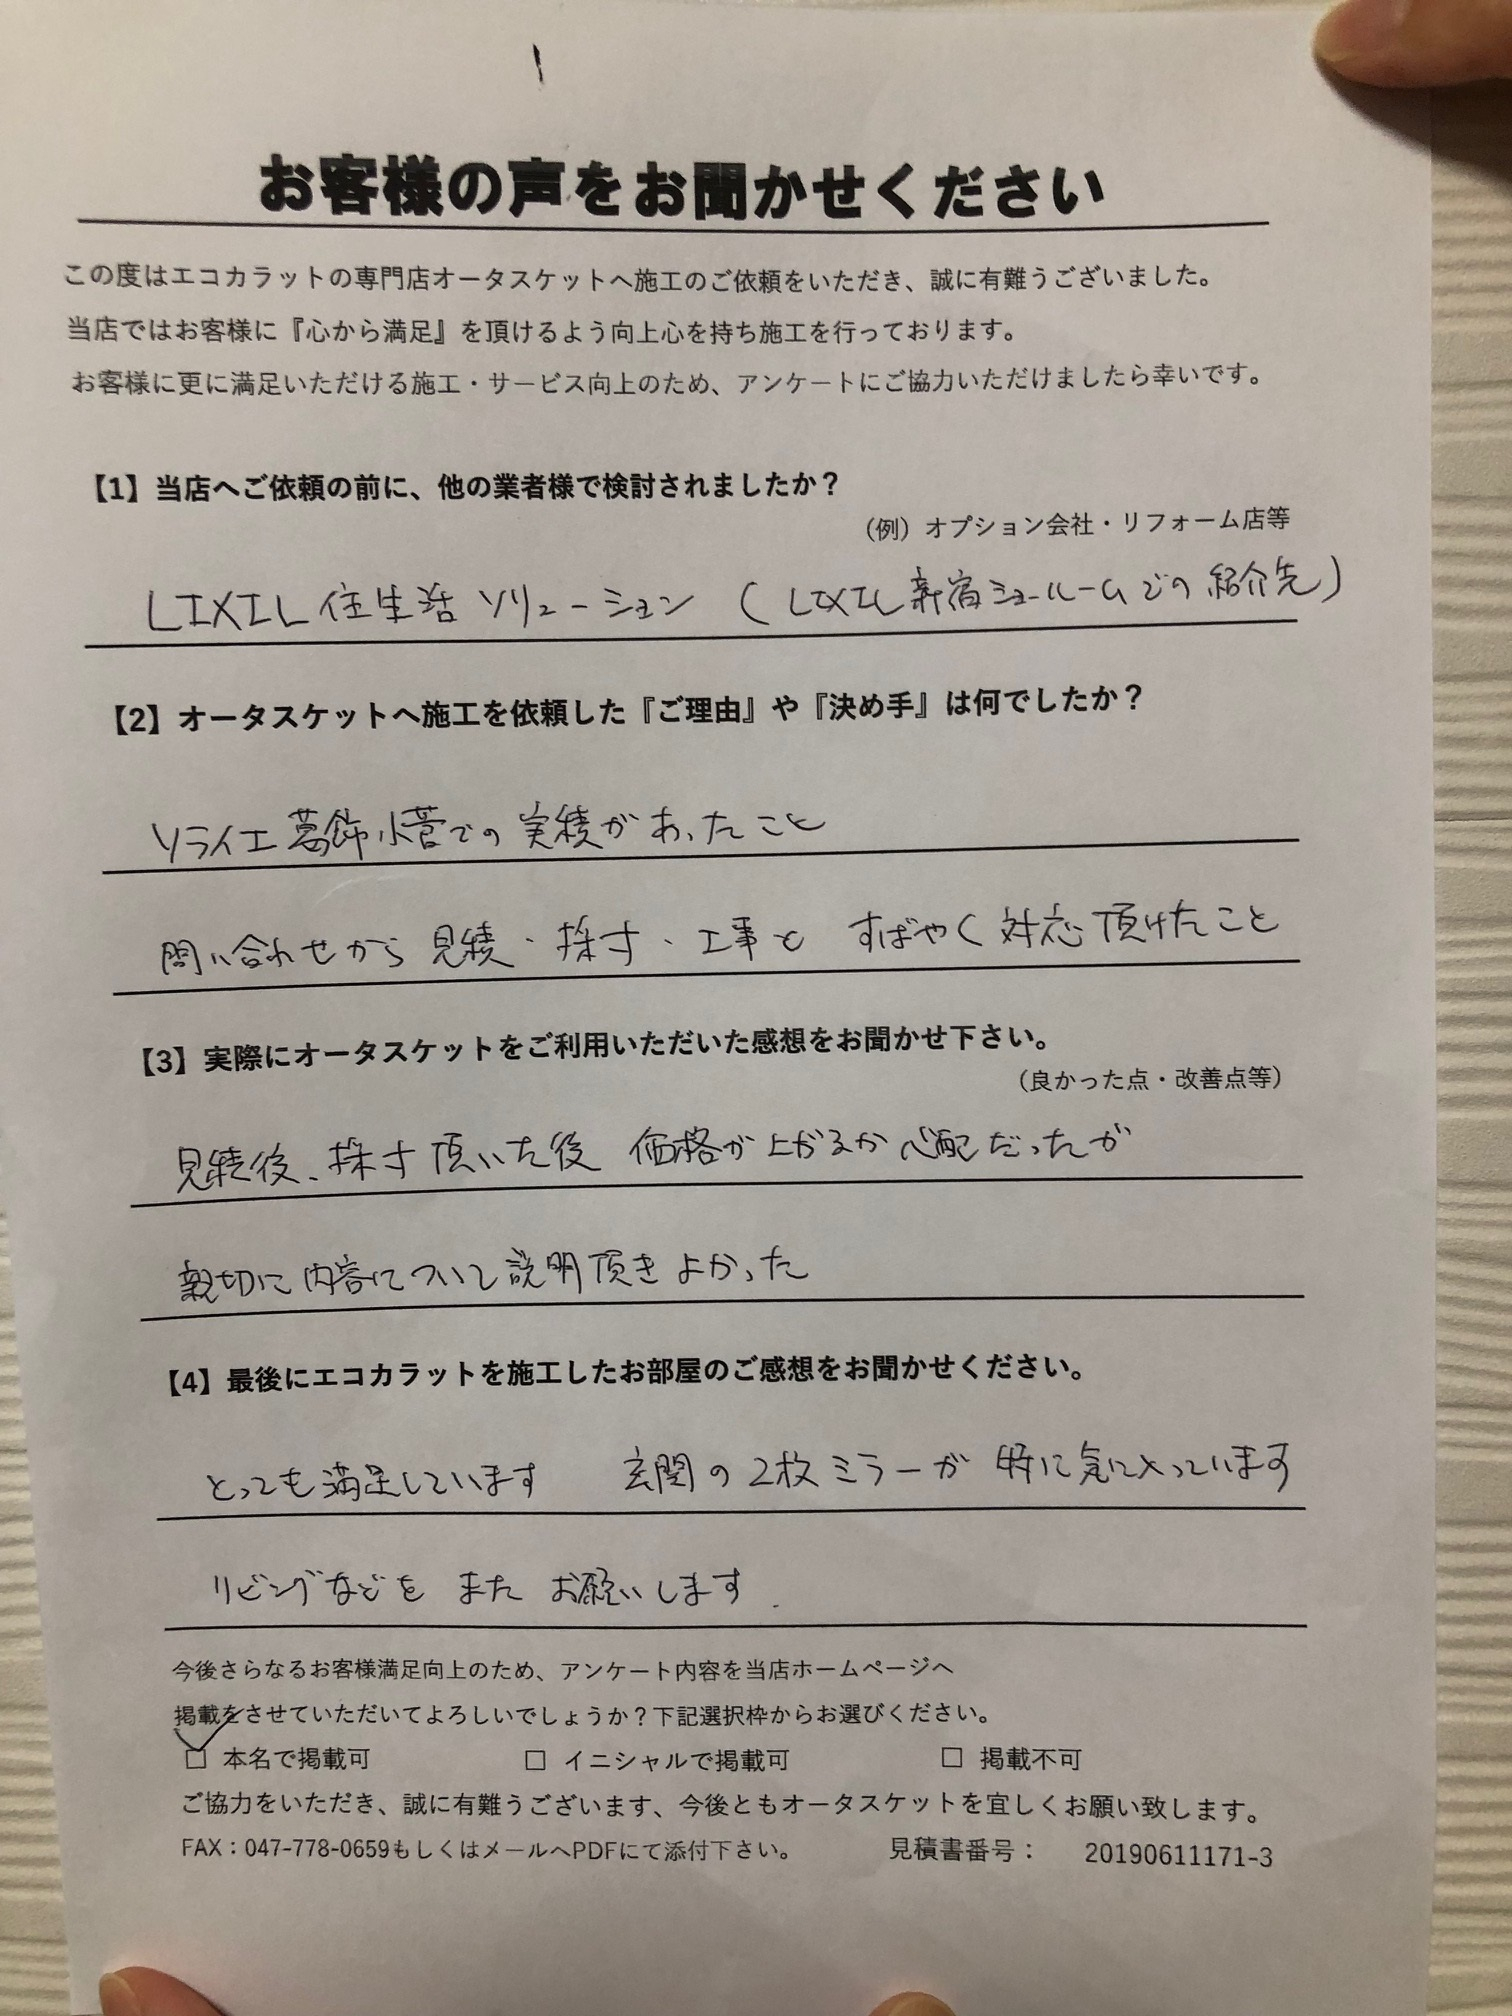 お客様の声をお聞かせください
この度はエコカラットの専門店オータスケットへ施工のご依頼をいただき、誠に有難うございました。
当店ではお客様に『心から満足』を頂けるよう向上心を持ち施工を行っております。
お客様に更に満足いただける施工・サービス向上のため、アンケートにご協力いただけましたら幸いです。
【1】当店へご依頼の前に、他の業者様で検討されましたか？
（例）オプション会社・リフォーム店等
LIXIL住生活ソリューション（LIXIL新宿ショールームでの紹介先）
【2】オータスケットへ施工を依頼した『ご理由』や『決め手』は何でしたか？
ソライエ葛飾小菅での実績があったこと
問い合わせから見積・採寸・工事と すばやく対応頂けたこと
【3】実際にオータスケットをご利用いただいた感想をお聞かせ下さい。
（良かった点・改善点等）
見積後、採寸頂いた後 価格が上がるか心配だったが
親切に内容について説明頂きよかった
【4】最後にエコカラットを施工したお部屋のご感想をお聞かせください。
とっても満足しています 玄関の2枚ミラーが特に気に入っています
リビングなどを またお願いします.
今後さらなるお客様満足向上のため、アンケート内容を当店ホームページへ
掲載をさせていただいてよろしいでしょうか？下記選択枠からお選びください。
☑ 本名で掲載可 □ イニシャルで掲載可 □ 掲載不可
ご協力をいただき、誠に有難うございます、今後ともオータスケットを宜しくお願い致します。
FAX：047-778-0659もしくはメールへPDFにて添付下さい。 見積書番号： 20190611171-3